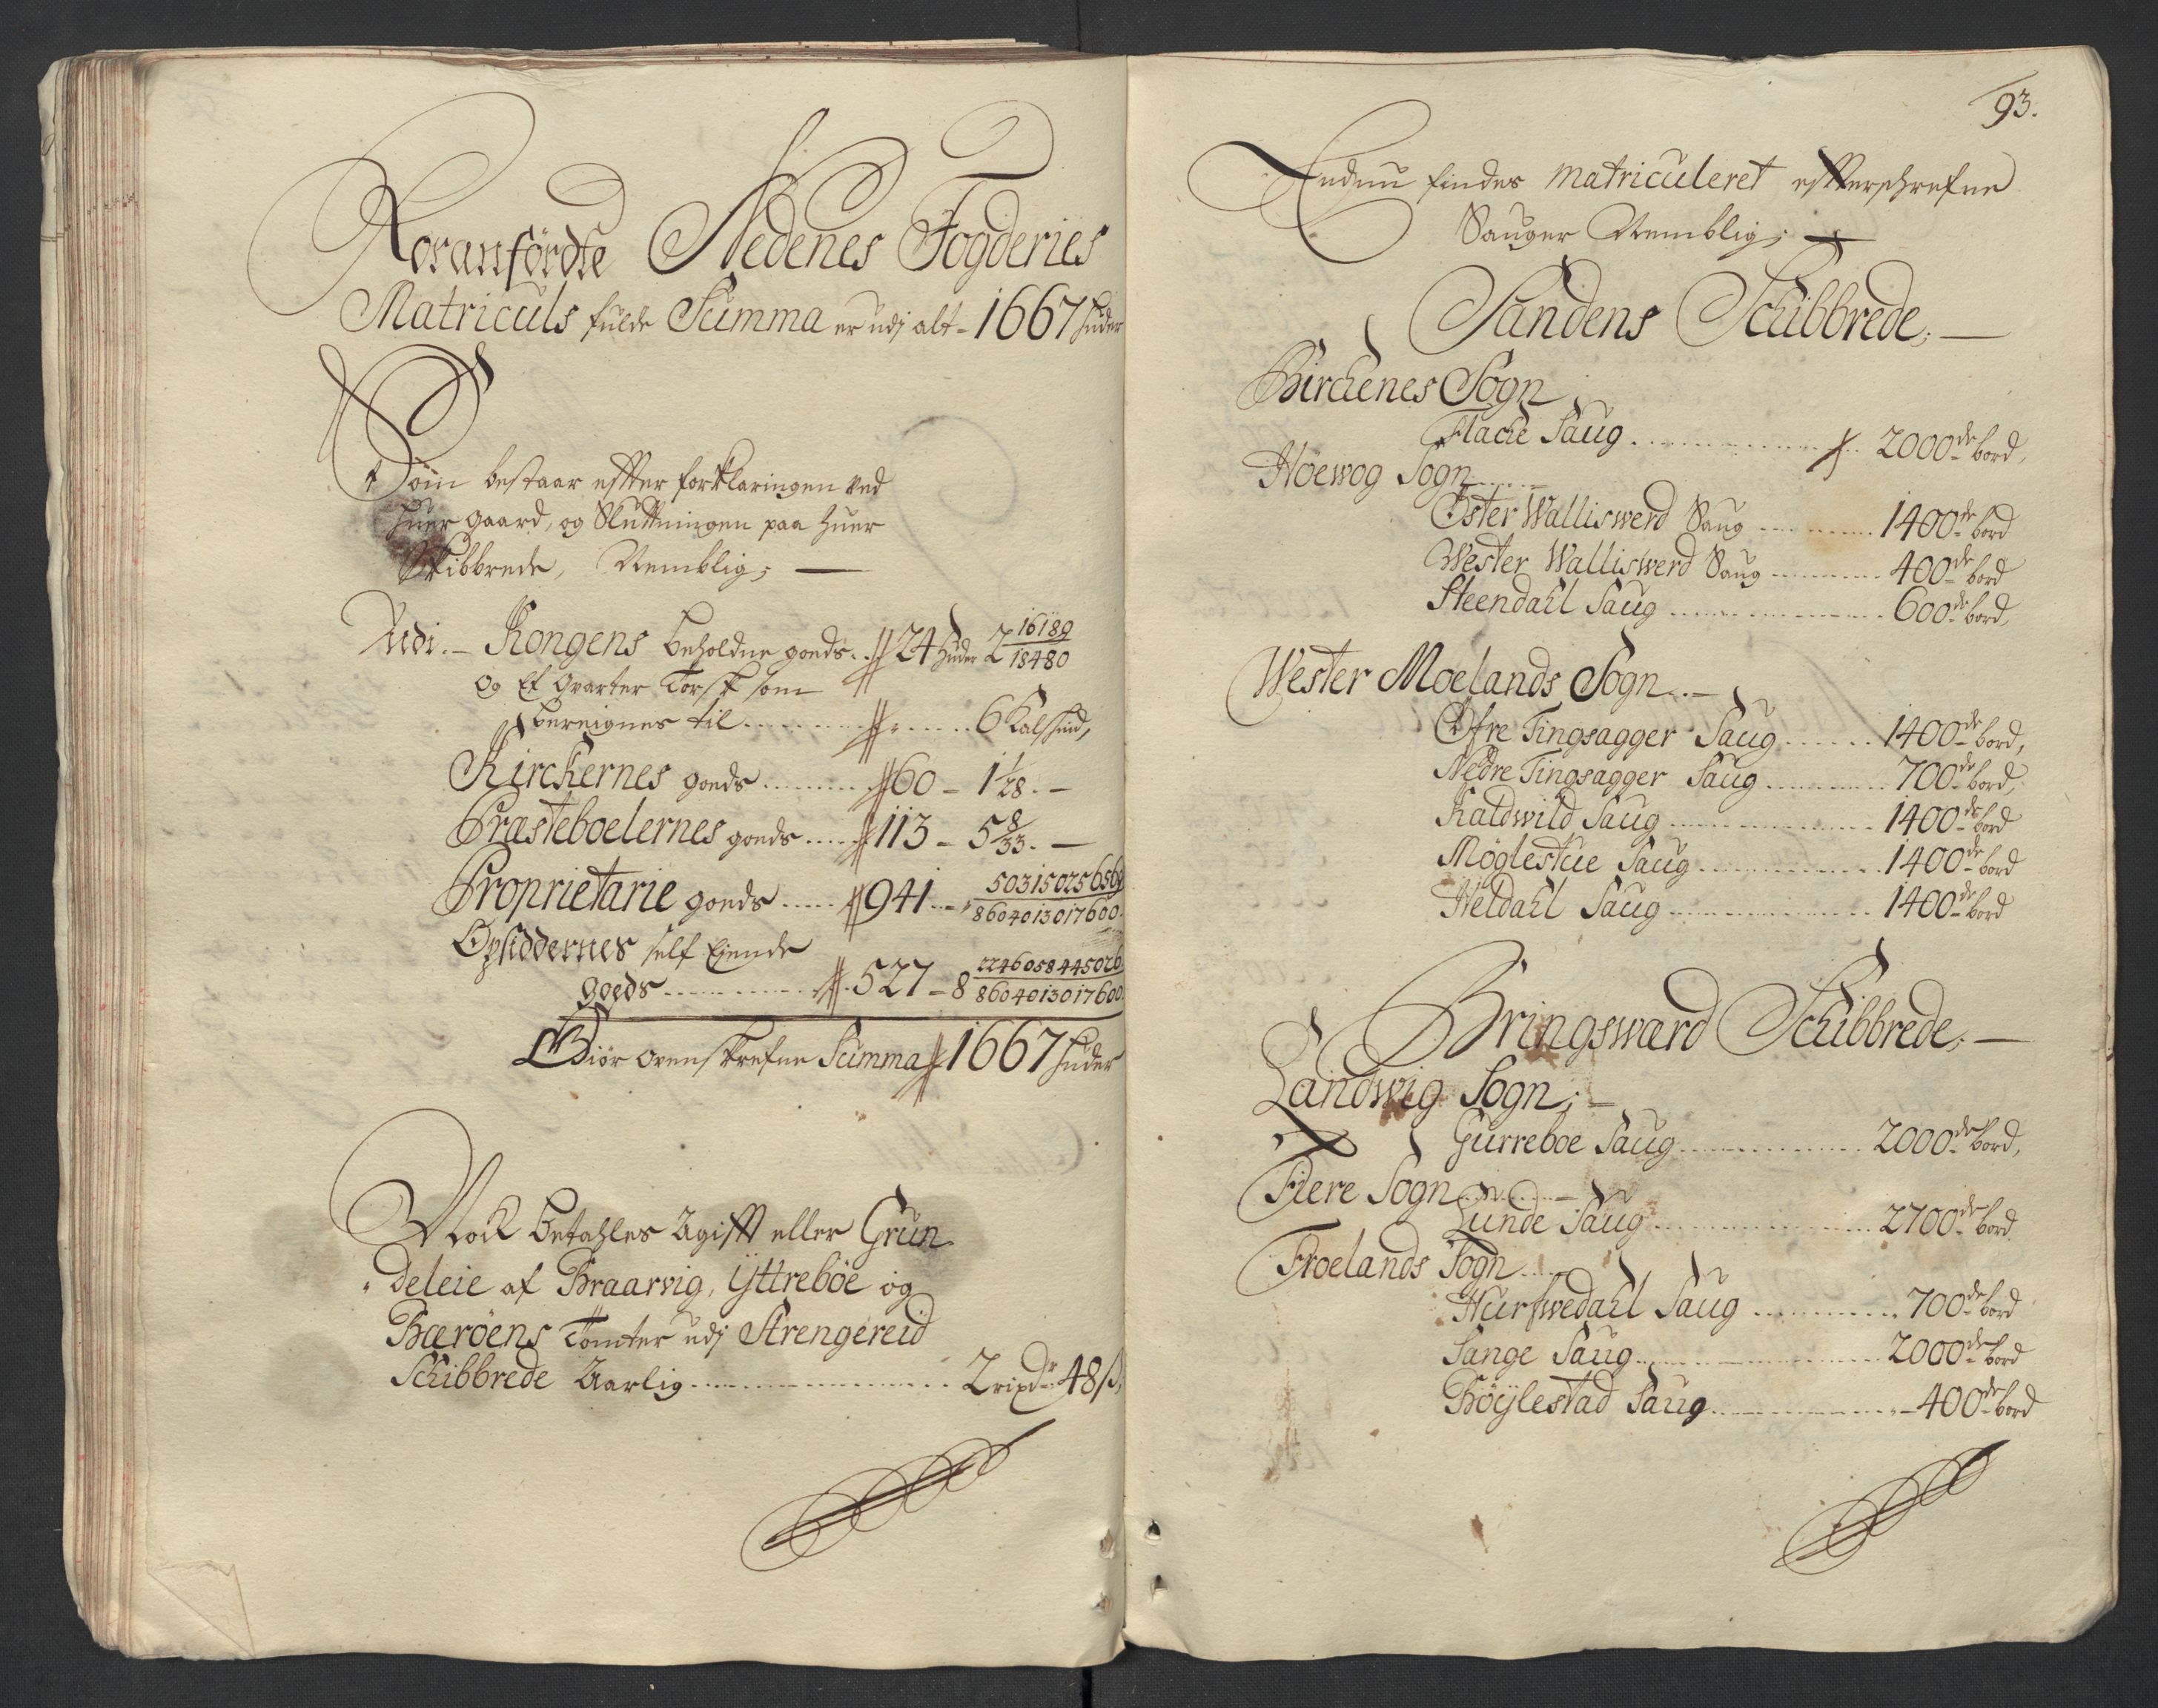 Foranfördte Nedenes Fogderies
Matriculs fulde Summa er udj alt - 1667 huder
Som bestaar effter forklaringen ved
huer gaard, og Sluttningen paa huer
Skibbrede, Nemblig; —
Udi. - Kongens beholdne goeds .. 24 huder 2 16189/18480
og Et Qvarter Torsk som
bereignes til .......... 6 Kalfskind,
Kirckernes goeds .......... 60 - 1 1/28. —
Præsteboelernes goeds ..... 113 - 5 8/33. —
Proprietarie goeds ...... 941 .. - 503150256569/8604013017600.
Opsiddernes self Ejende
goeds .......... 527 - 8 2246058445026/8604013017600.
Giör ovenskrefne Summa 1667 huder
Nock betahles Agifft eller Grun-
deleie af Braarvig, Yttreböe og
Bæröens Tomter udj Strengereid
Schibbrede Aarlig .......... 2 rixdr 48 ß,
93.
Endnu findes matriculeret effterschrefne
Sauger Nemblig; —
Sandens Schibbrede; —
Birckenes Sogn
Flacke Saug .......... 2000de bord,
Höewog Sogn ......
Öster Walliswerd Saug .......... 1400de bord
Wester Walliswerd Saug .......... 400de bord
Steendahl Saug .......... 600de bord,
Wester Moelands Sogn .. —
Öfre Tingsagger Saug ...... 1400de bord,
Nedre Tingsagger Saug .......... 700de bord,
Kaldwild Saug .......... 1400de bord
Möglestue Saug .......... 1400de bord
Heldahl Saug .......... 1400de bord
Bringswærd Schibbrede; —
Landwig Sogn; —
Gurreboe Saug .......... 2000de bord,
Fiere Sogn ...... —
Lunde Saug .......... 2700de bord
Froelands Sogn ....
Hurfwedahl Saug .......... 700de bord
Sange Saug .......... 2000de bord
Böylestad Saug .......... 400de bord